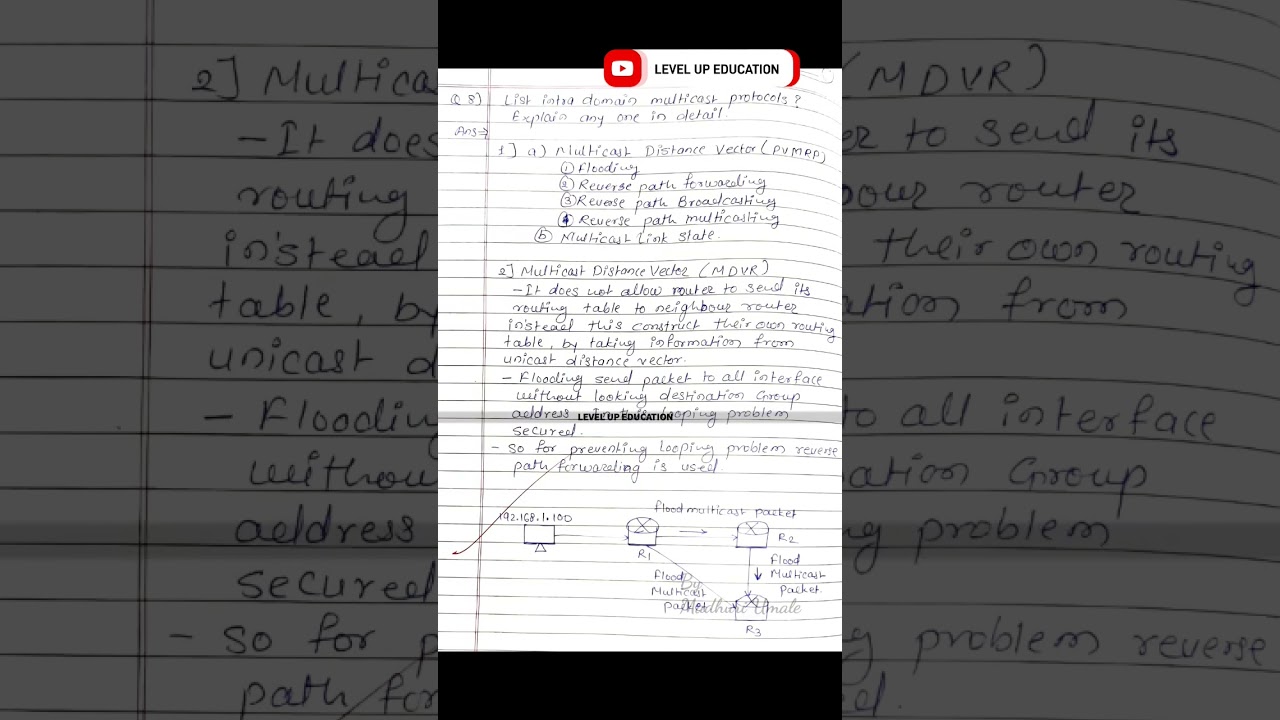 LEVEL UP EDUCATION
Q 8] List intra domain multicast protocols?
Explain any one in detail.
Ans⇒
1] a) Multicast Distance Vector (DVMRP)
① Flooding
② Reverse path forwarding
③ Reverse path Broadcasting
④ Reverse path multicasting
ⓑ Multicast Link State.
2] Multicast Distance Vector (MDVR)
- It does not allow router to send its
routing table to neighbour router
instead this construct their own routing
table, by taking information from
unicast distance vector.
- Flooding send packet to all interface
without looking destination Group
address looping problem
LEVEL UP EDUCATION
secured.
- so for preventing looping problem reverse
path forwarding is used.
flood multicast packet
192.168.1.100
R1
R2
Flood
Multicast
packet.
Flood
Multicast
packet
By
Umale
R3
2] Multica
(MDVR)
- It does
er to send its
routing
bour router
instead
their own routing
table, by
ation from
unicast d
- Floodin
to all interface
withou
ation Group
address
ng problem
secured
- so for p
problem reverse
path for
ed.